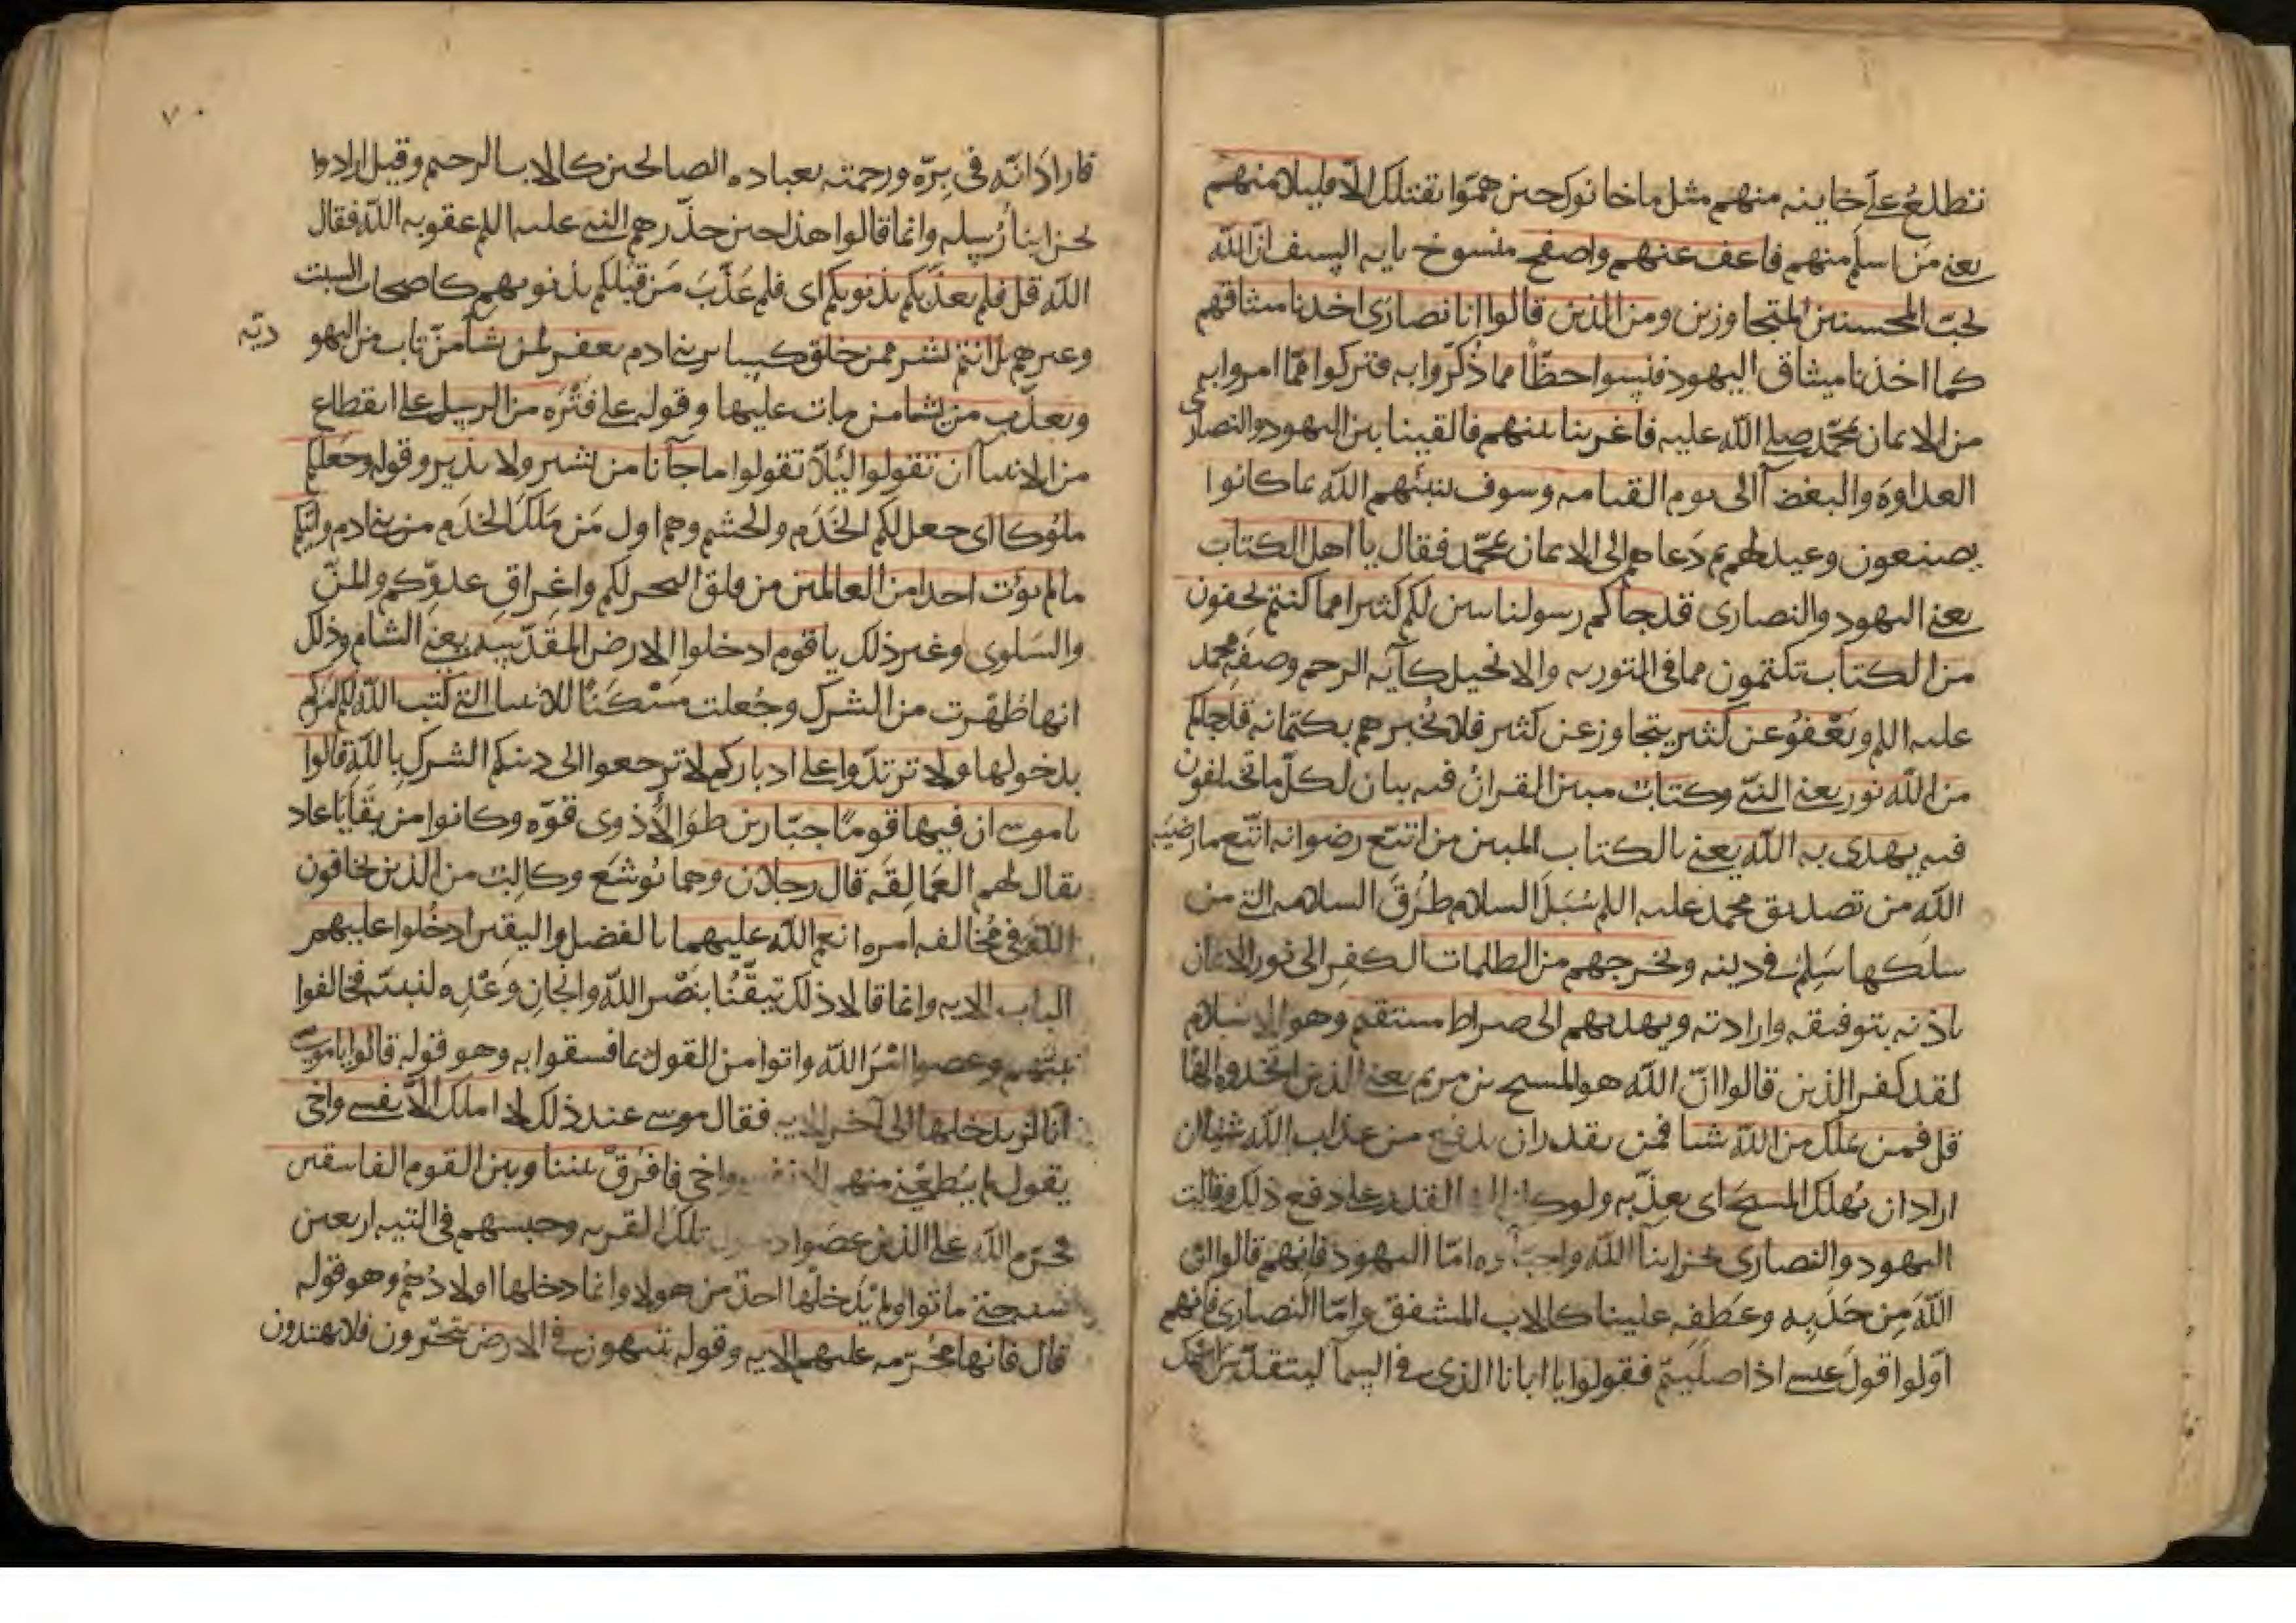 تطلع على خاينه منهم مثل ما خانوك حين همّوا بقتلك الّا قليلا منهم
يعني من اسلم منهم فاعف عنهم واصفح منسوخ بايه السيف ان الله
يحبّ المحسنين المتجاوزين ومن الذين قالوا انا نصارى اخذنا ميثاقهم
كما اخذنا ميثاق اليهود فنسوا حظّا مما ذُكّروا به فتركوا ممّا امروا به
من الايمان بمحمّد صلى الله عليه فاغرينا بينهم فالقينا بين اليهود والنصارى
العداوة والبغضآ الى يوم القيامه وسوف ينبئهم الله بما كانوا
يصنعون وعيد لهم ثم دَعاهم الى الايمان بمحمّد فقال يا اهل الكتاب
يعني اليهود والنصارى قد جاكم رسولنا يبين لكم كثيرا مما كنتم تخفون
من الكتاب تكتمون مما في التوريه والانجيل كآيه الرجم وصفه محمد
عليه السلم ويَعْفُو عن كثير يتجاوز عن كثير فلا يُخبرهم بكتمانه قد جاكم
من الله نور يعني النبيّ وكتابٌ مبين القرانُ فيه بيان لكلّ ما تختلفون
فيه يهدى به الله يعني بالكتاب المبين من اتبّع رضوانه اتّبع ما رضيَه
الله من تصديق محمد عليه السلم سُبَلَ السلام طُرُقَ السلامه التي من
سلكها سَلِمَ في دينه ويخرجهم من الظلمات الكفر الى نور الايمان
باذنه بتوفيقه وارادته ويهديهم الى صراط مستقيم وهو الاسلام
لقد كفر الذين قالوا انّ الله هو المسيح بن مريم يعني الذين اتخذوه الها
قل فمن يملك من الله شيا فمن يقدر ان يدفع من عذاب الله شيا ان
اراد ان يُهلك المسيحَ اى يعذّبه ولو كان الها لقدر على دفع ذلك وقالت
اليهود والنصارى نحن ابنآ الله واحبّآوه امّا اليهود فانهم قالوا انّ
اللهَ مِن حَدَبِه وعَطفِه علينا كالاب المشفق وامّا النصارى فانهم
اوّلوا قولَ عيسى اذا صلّيتم فقولوا يا ابانا الذى في السمآ ليتقدّس اسمك
فاراد انّه في برّه ورحمته بعباده الصالحين كالاب الرحيم وقيل ارادوا
نحن ابنآ رُسله وانما قالوا هذا حين حذّرهم النبي عليه السلم عقوبه الله فقال
الله قل فلم يعذّبكم بذنوبكم اى فلم عَذّبَ مَن قبلكم بذنوبهم كاصحاب السبت
وغيرهم بل انتم بشر ممن خلق كساير بني ادم يغفر لمن يشآ من تاب من اليهو
ديّه
ويعذّب من يشا من مات عليها وقوله على فتْرَه من الرسل على انقطاع
من الانبيآ ان تقولوا ليَلّا تقولوا ما جآنا من بشير ولا نذير وقوله وجعلكم
ملوكا اى جعل لكم الخَدَم والحشم وهم اول مَن مَلَك الخدَم من بني ادم واتاكم
ما لم يؤت احدا من العالمين من فلق البحر لكم واغراق عدوّكم والمنّ
والسلوى وغير ذلك يا قوم ادخلوا الارض المقدّسه يعني الشام وذلك
انها طُهّرت من الشرك وجُعلت مَسْكَنًا للانبيا التي كتب الله لكم امركم
بدخولها ولا ترتدّوا على ادباركم لا ترجعوا الى دينكم الشرك بالله قالوا
يا موسى ان فيها قومًا جبّارين طوالًا ذوى قوّه وكانوا من بقايا عاد
يقال لهم العَمالِقَه قال رجلان وهما يُوشَع وكالِبُ من الذين يخافون
الله في مُخالفه امره انعم الله عليهما بالفضل واليقين ادخُلوا عليهم
الباب الايه وانما قالا ذلك تيقّنًا بنَصْر الله وانجازِ وَعْدِه لنبيّه فخالفوا
نبيّهم وعصوا امْرَ الله واتوا من القول بما فسقوا به وهو قوله قالوا يا موسى
انّا لن ندخلها الى آخر الايه فقال موسى عند ذلك لا املك الّا نفسى واخى
يقول لم يُطِعْني منهم الا نفسى واخى فافرُق بيننا وبين القوم الفاسقين
فحرّم الله على الذين عَصَوا دخول تلك القريه وحبسهم في التيه اربعين
سنه حتى ماتوا ولم يَدْخُلها احدٌ من هولا وانما دخلها اولادُهم وهو قوله
قال فانها مُحَرّمه عليهم الايه وقوله يتيهون في الارض يتحيّرون فلا يهتدون
٧٠